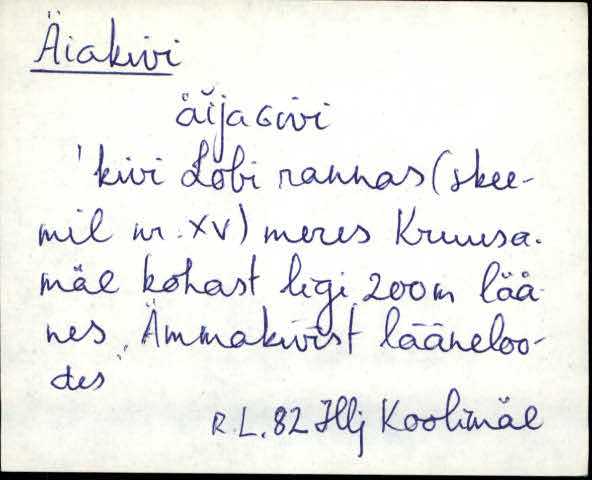 Äiakivi
äĭjaɢivi
'kivi Lobi rannas (skee-
mil nr. XV) meres Kruusa-
mäe kohast ligi 200 m lää-
nes, Ämmakivist lääneloo-
des
R. L. 82 Hlj Koolimäe